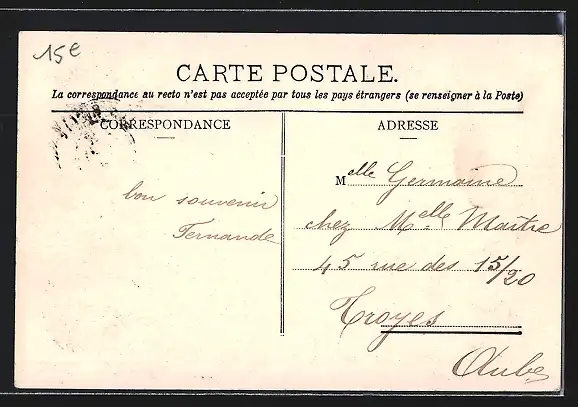 15 e
CARTE POSTALE.
La correspondance au recto n'est pas acceptée par tous les pays étrangers (se renseigner à la Poste)
CORRESPONDANCE
bon souvenir
Fernande
ADRESSE
Melle Germaine
chez Melle Maitre
45 rue des 15/20
Troyes
Aube